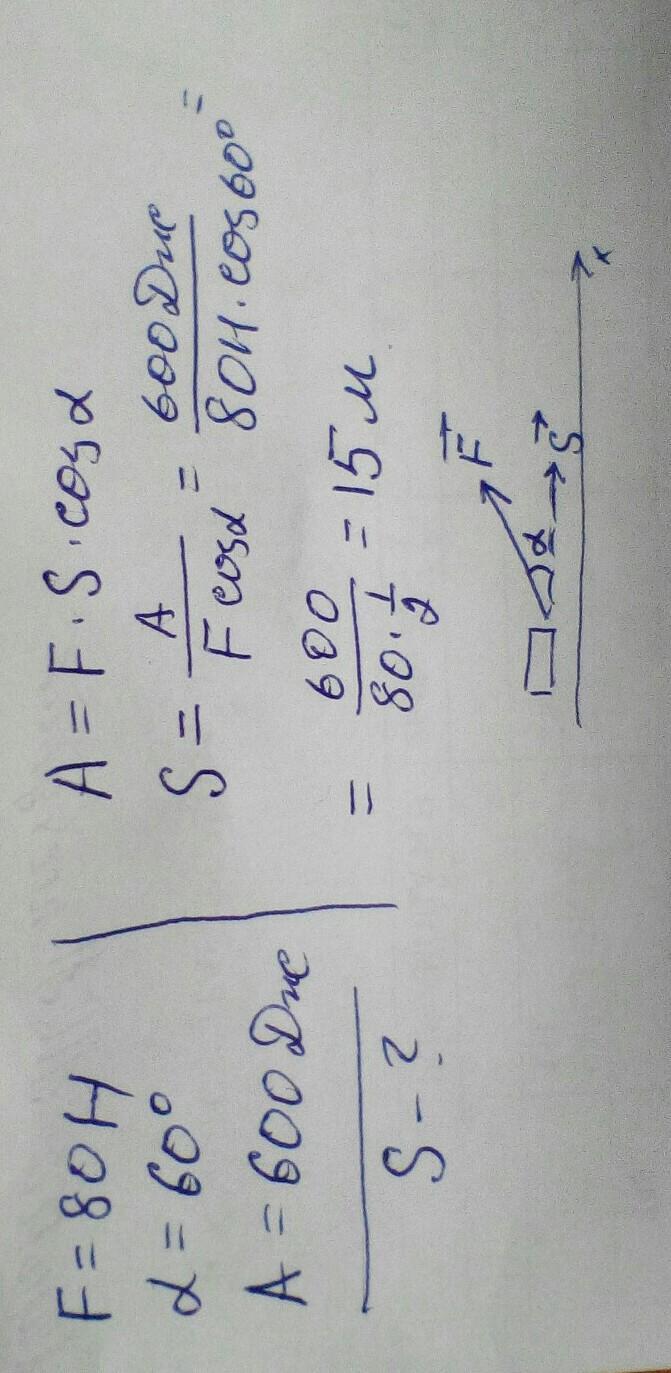 F = 80 Н
α = 60°
A = 600 Дж
S - ?
A = F · S · cos α
S = A / F cos α = 600 Дж / 80 Н · cos 60° =
= 600 / 80 · 1/2 = 15 м
F
α
S
x